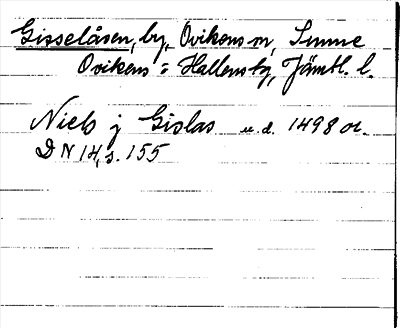 Gisselåsen, by, Ovikens sn, Sunne
Ovikens o Hallens tg, Jämtl. l.
Niels j Gislas u. d. 1498 or.
DN 14, s. 155